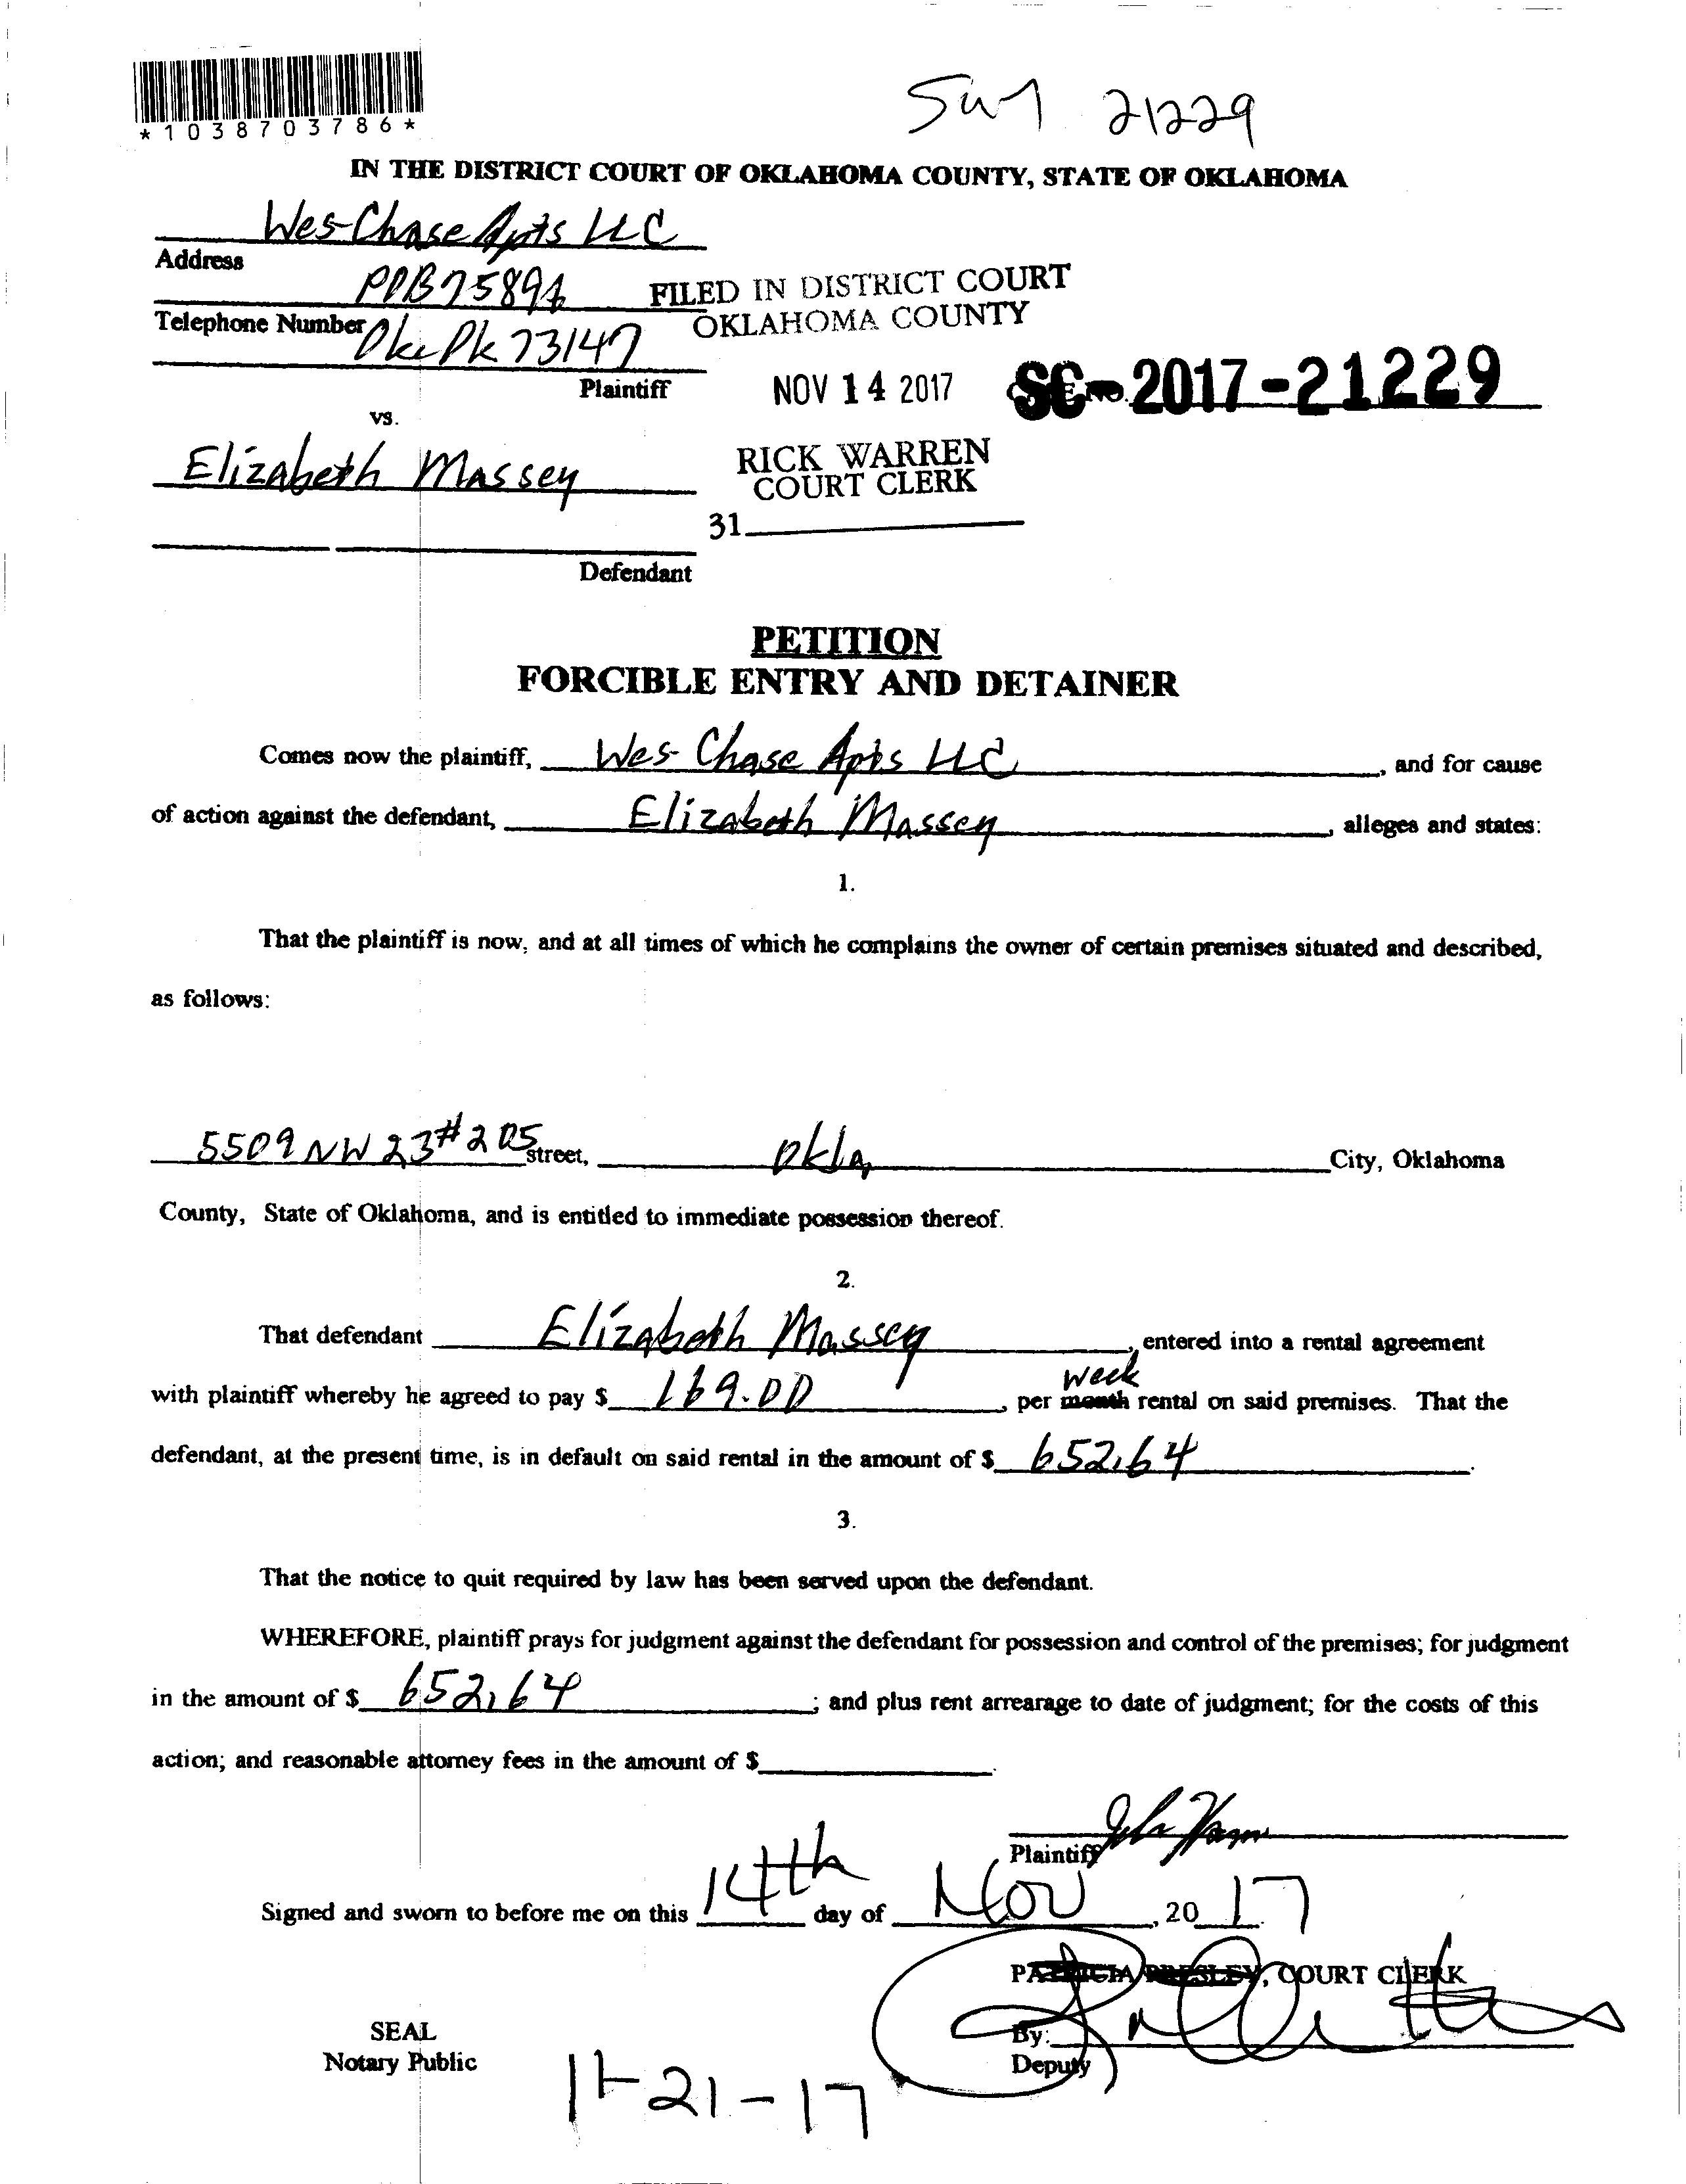 *1038703786*
21229
IN THE DISTRICT COURT OF OKLAHOMA COUNTY, STATE OF OKLAHOMA
Wes-Chase Apts LLC
Address
POB 75894
FILED IN DISTRICT COURT
OKLAHOMA COUNTY
Telephone Number
73147
Plaintiff
NOV 14 2017
SC-2017-21229
vs.
Elizabeth Massey
RICK WARREN
COURT CLERK
31
Defendant
PETITION
FORCIBLE ENTRY AND DETAINER
Comes now the plaintiff, Wes-Chase Apts LLC, and for cause
of action against the defendant, Elizabeth Massey, alleges and states:
1.
That the plaintiff is now, and at all times of which he complains the owner of certain premises situated and described,
as follows:
5509 NW 23 #205 street, Okla City, Oklahoma
County, State of Oklahoma, and is entitled to immediate possession thereof.
2.
That defendant Elizabeth Massey, entered into a rental agreement
week
with plaintiff whereby he agreed to pay $ 169.00, per month rental on said premises. That the
defendant, at the present time, is in default on said rental in the amount of $ 652.64.
3.
That the notice to quit required by law has been served upon the defendant.
WHEREFORE, plaintiff prays for judgment against the defendant for possession and control of the premises; for judgment
in the amount of $ 652.64; and plus rent arrearage to date of judgment; for the costs of this
action; and reasonable attorney fees in the amount of $.
Plaintiff
Signed and sworn to before me on this 14th day of Nov, 20 17
PATRICIA PRESLEY, COURT CLERK
SEAL
By:
Notary Public
Deputy
11-21-17